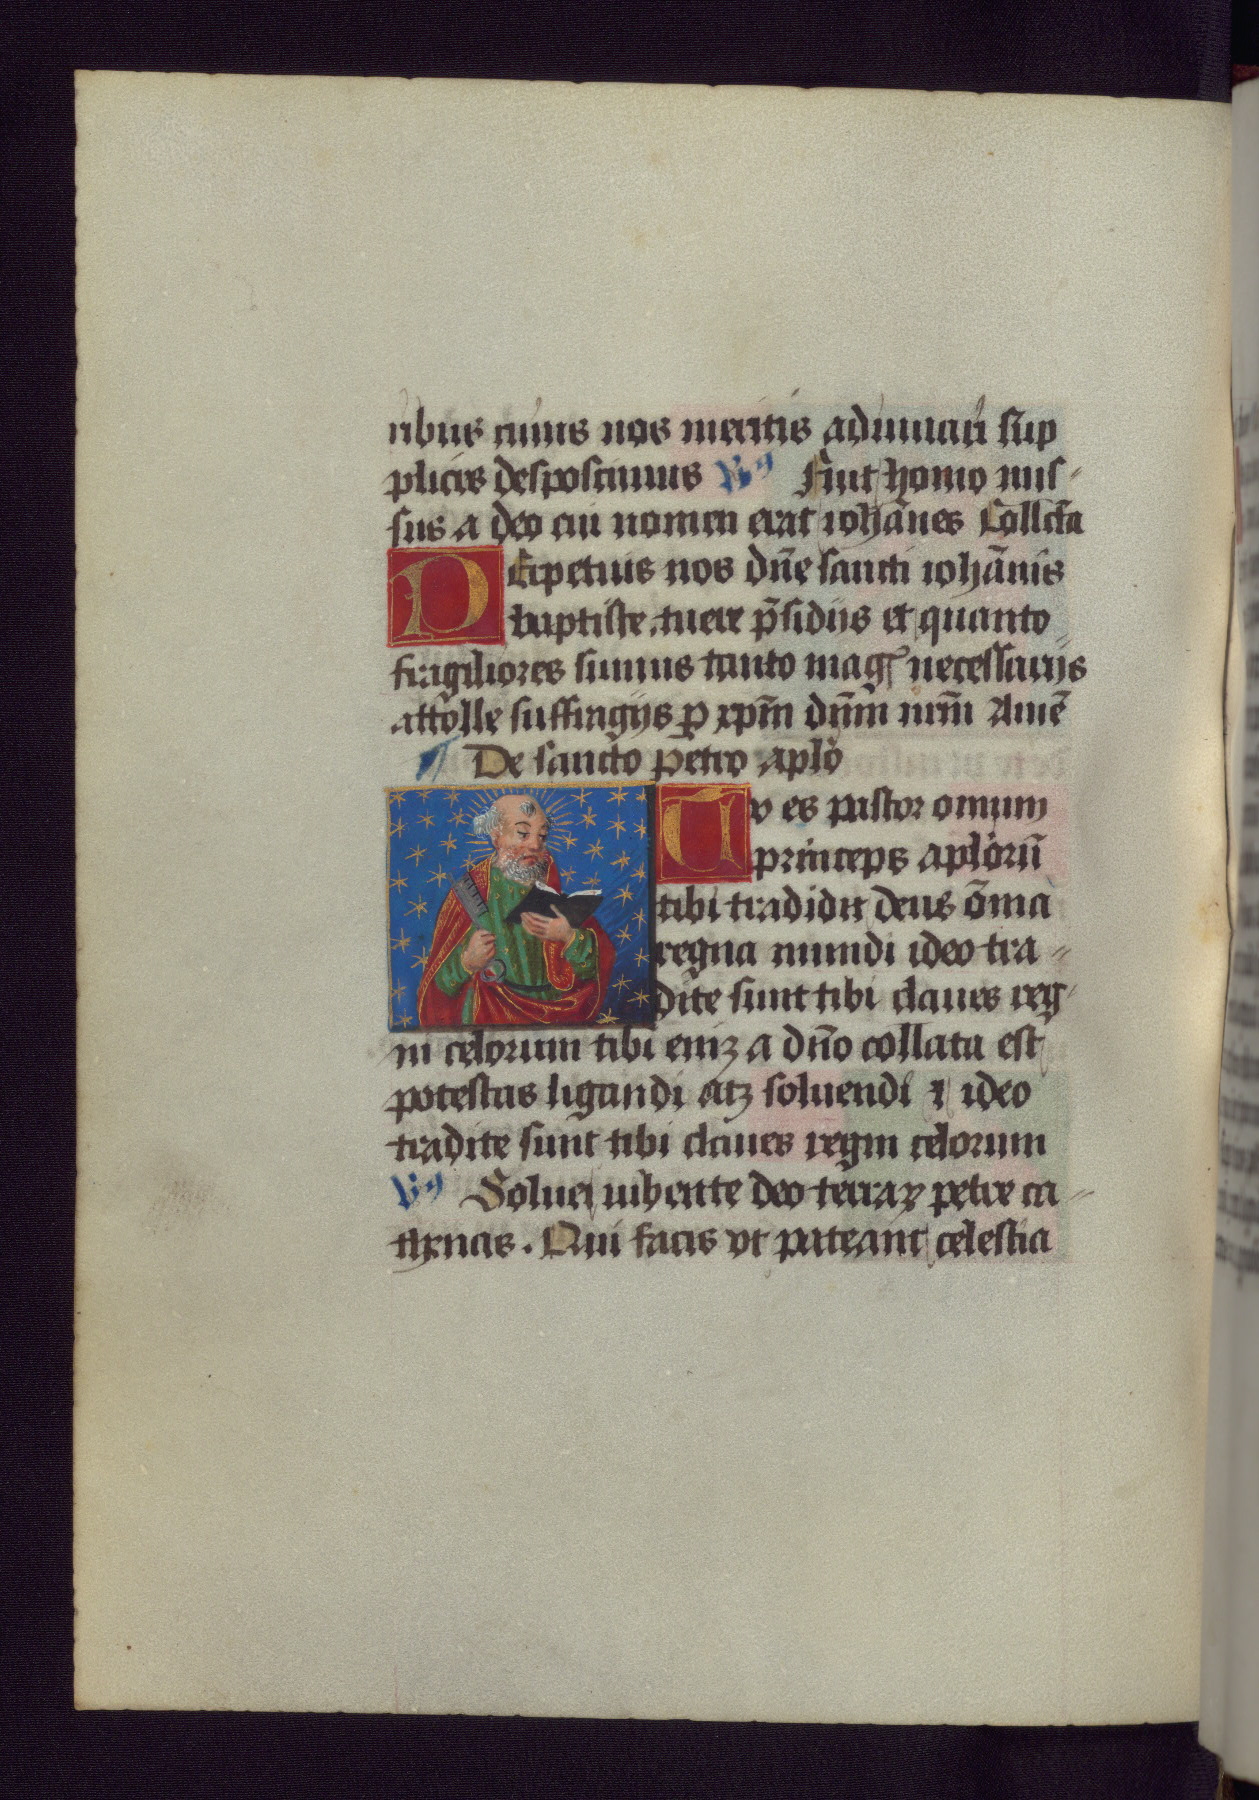 ribus cuius nos meritis adiuuari sup
plices desposcimus Vs Fuit homo mis-
sus a deo cui nomen erat iohãnes Collcta
PErpetuis nos dñe sancti iohãnis
baptiste tuere p̃sidijs et quanto
fragiliores sumus tanto mag᷒ necessarijs
attolle suffragijs ꝑ xp̃m dñm nr̃m Amẽ
De sancto petro aplo
Tv es pastor omium
princeps aplorũ
tibi tradidit deus õmia
regna mundi ideo tra-
dite sunt tibi claues reg-
ni celorum tibi eniꝫ a dño collata est
potestas ligandi atꝫ soluendi ⁊ ideo
tradite sunt tibi claues regni celorum
Vs Solue iubente deo terraꝝ petre ca-
thenas. Qui facis vt pateant celestia